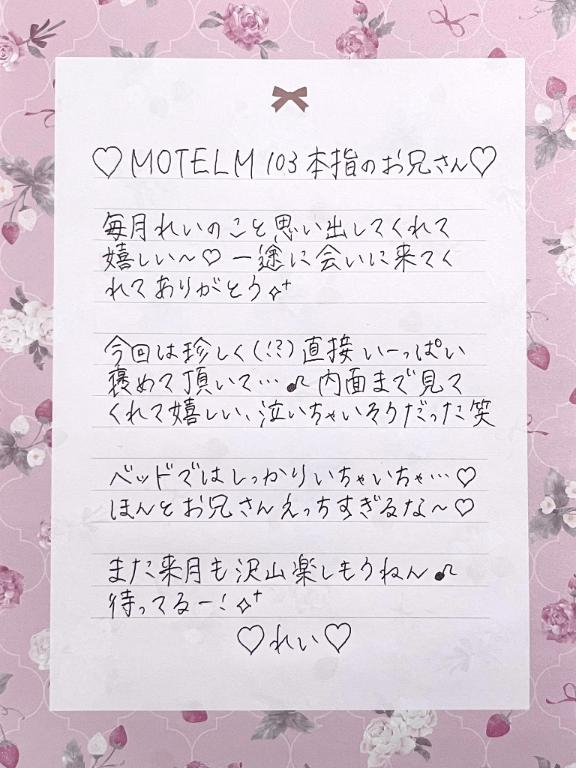 ♡MOTELM 103 本指のお兄さん♡
毎月れいのこと思い出してくれて
嬉しい〜♡ 一途に会いに来てく
れてありがとう✧⁺
今回は珍しく(!?)直接いーっぱい
褒めて頂いて…♪内面まで見て
くれて嬉しい、泣いちゃいそうだった笑
ベッドではしっかりいちゃいちゃ…♡
ほんとお兄さんえっちすぎるな〜♡
また来月も沢山楽しもうねん♪
待ってるー!✧⁺
♡れい♡